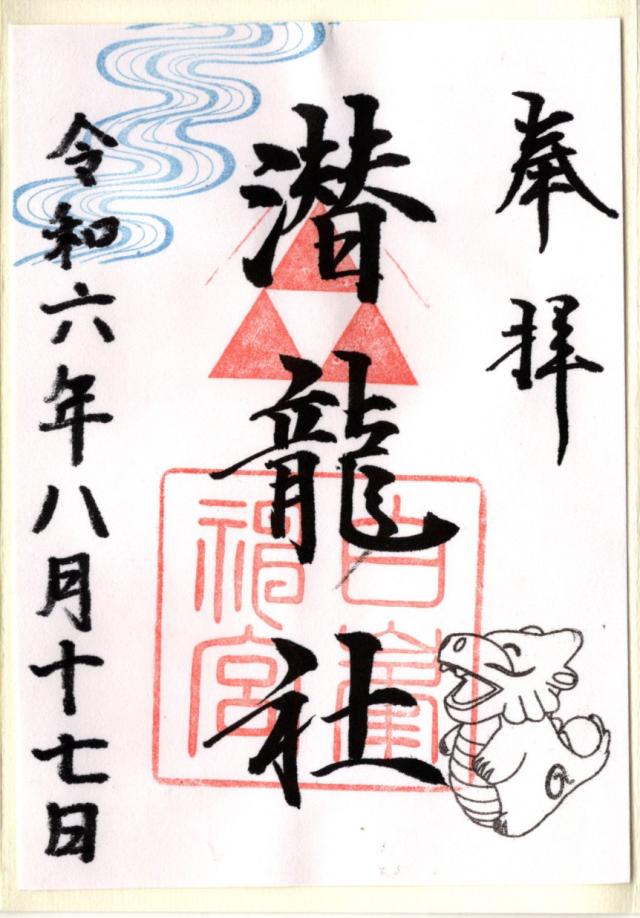 奉拝
潜龍社
白峯神宮
令和六年八月十七日